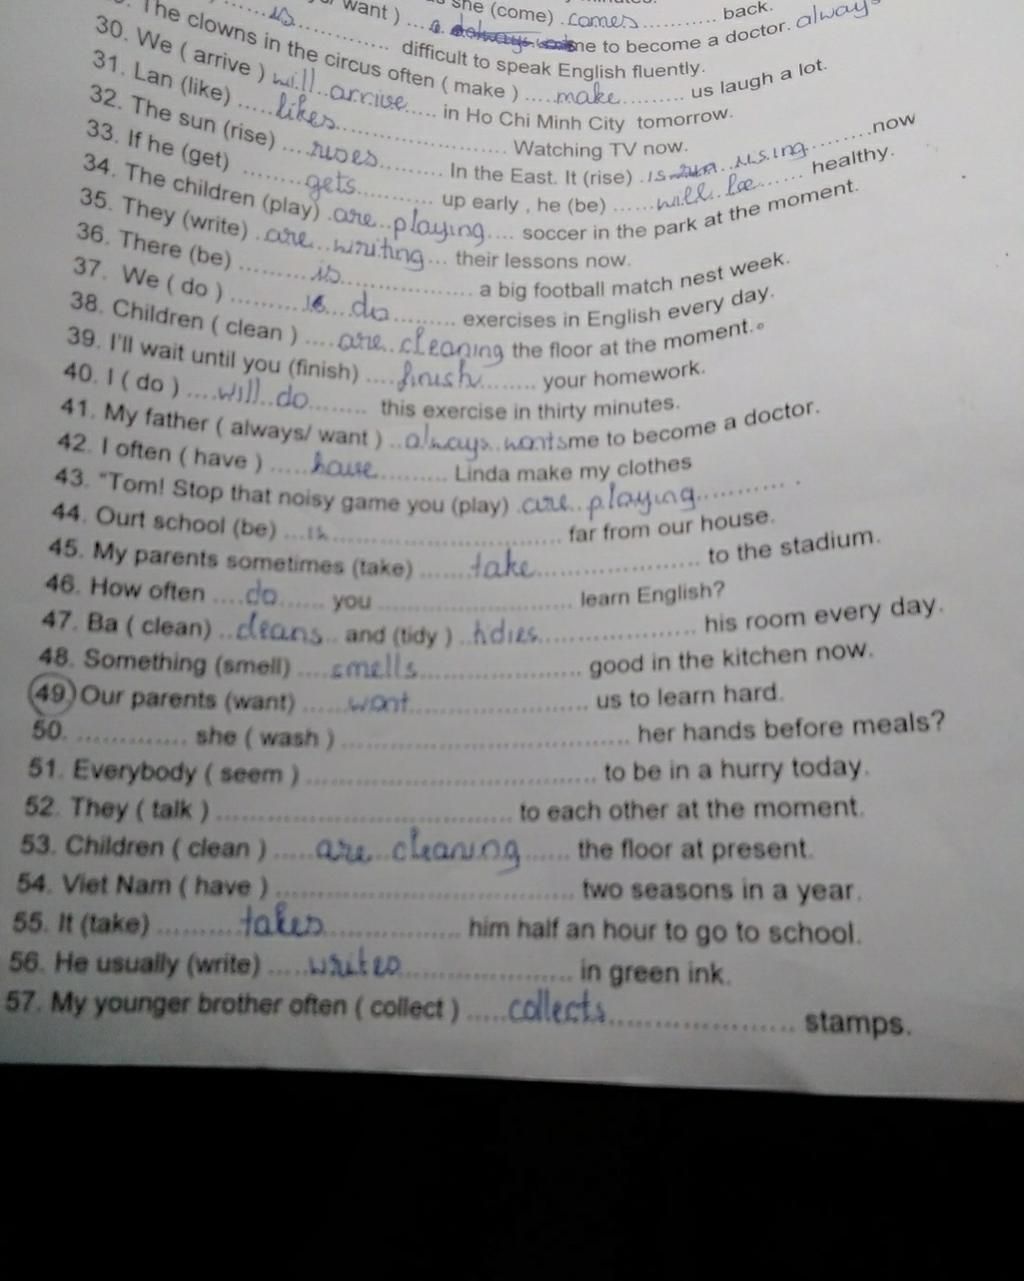 want ) ... she (come) .comes........... back.
me to become a doctor. always
......is.............. difficult to speak English fluently.
The clowns in the circus often ( make ) ....make......... us laugh a lot.
30. We ( arrive ) will..arrive..... in Ho Chi Minh City tomorrow.
31. Lan (like) .....likes........................ Watching TV now.
32. The sun (rise) ....rises......... In the East. It (rise) .is rising.........now
33. If he (get) .........gets........... up early , he (be) ......will..be...... healthy.
34. The children (play) .are..playing.... soccer in the park at the moment.
35. They (write) .are..writing... their lessons now.
36. There (be) ..........is.................... a big football match nest week.
37. We ( do ) ..........do.......... exercises in English every day.
38. Children ( clean ) ....are..cleaning the floor at the moment.
39. I'll wait until you (finish) ....finish........ your homework.
40. I ( do ) ....will..do......... this exercise in thirty minutes.
41. My father ( always/ want ) ..always..wants me to become a doctor.
42. I often ( have ) .....have.......... Linda make my clothes
43. "Tom! Stop that noisy game you (play) .are..playing............ .
44. Ourt school (be) ...is................................ far from our house.
45. My parents sometimes (take) .......take...................... to the stadium.
46. How often ....do...... you ............................. learn English?
47. Ba ( clean) ..cleans.. and (tidy ) ..tidies..................... his room every day.
48. Something (smell) ....smells..................... good in the kitchen now.
49. Our parents (want) ......want....................... us to learn hard.
50. .............. she ( wash ) ..................................... her hands before meals?
51. Everybody ( seem ) ..................................... to be in a hurry today.
52. They ( talk ) ...................................... to each other at the moment.
53. Children ( clean ) .....are..cleaning...... the floor at present.
54. Viet Nam ( have ) ...................................... two seasons in a year.
55. It (take) ..........takes................. him half an hour to go to school.
56. He usually (write) .....writes...................... in green ink.
57. My younger brother often ( collect ) .....collects........................ stamps.